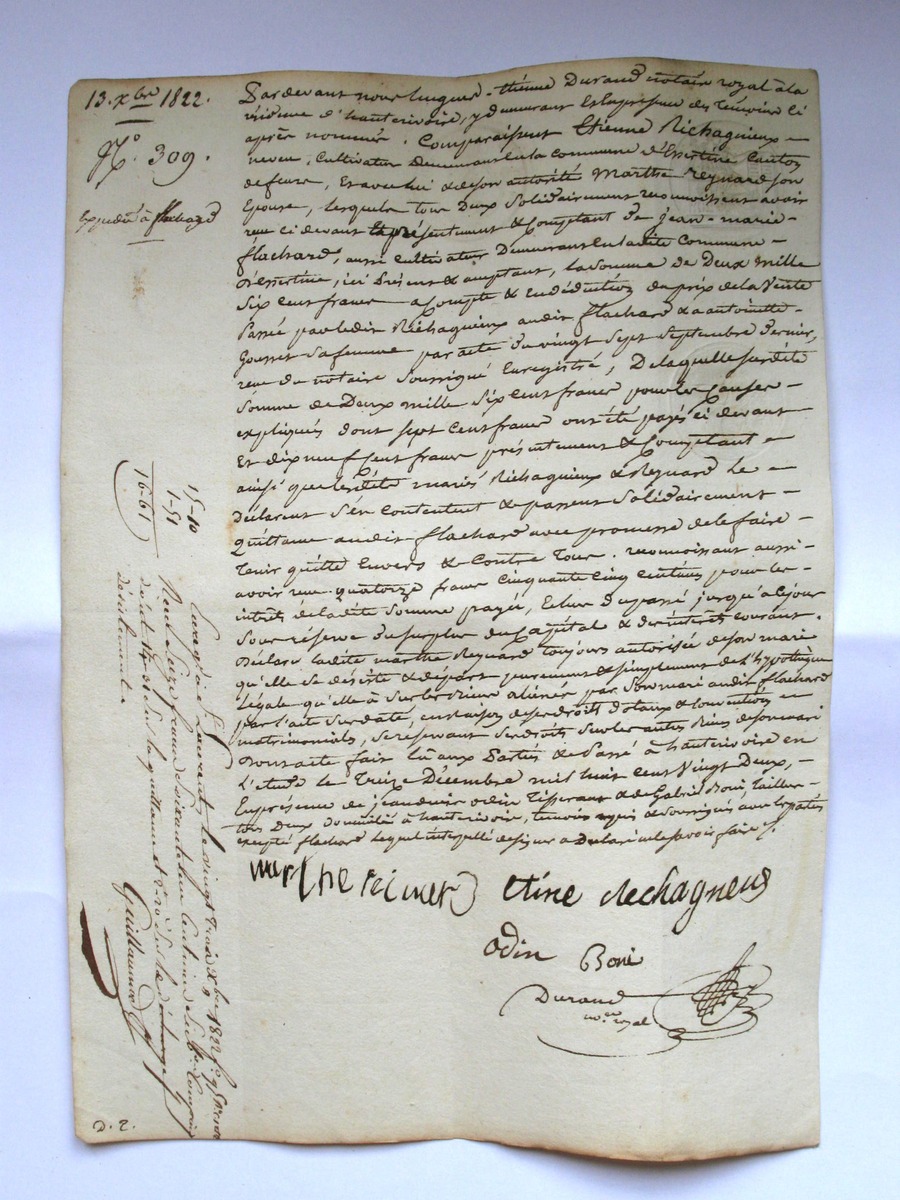 13. xbre 1822.
N.o 309.
Expédié à flachard
Pardevant nous hugues-étienne Durand notaire royal à la
résidence d'hauterivoire, y demeurant Et la présence des témoins ci
après nommés. Comparaissent Etienne Richagnieux –
neveu, Cultivateur Demeurant En la commune d'Essertine Canton
de feurs, Et avec lui & de son autorité Marthe Reynard son
Epouse, lesquels tous Deux Solidairement reconnoissent avoir
reçu ci devant la présentement & Comptant de jean-marie-
flachard, aussi Cultivateur Demeurant En ladite Commune –
d'essertine, ici présent & acceptant, la Somme de Deux mille
Six Cent francs a Compte & En déduction du prix de la Vente
Passée par ledit Richagnieux audit flachard & a antoinette
Gousset Sa femme par acte du vingt Sept Septembre Dernier,
reçu du notaire Soussigné Enregistré, De laquelle Susdite
Somme de Deux mille Six Cent francs pour les Causes –
expliquées dont Sept Cent francs ont été payés ci devant
Et dix neuf Cent francs présentement & Comptant –
ainsi que lesdits mariés Richagnieux & Reynard le –
Déclarent S'en Contentent & passent Solidairement –
Quittance audit flachard avec promesse de le faire –
Tenir quitte Envers & Contre Tous. reconnoissant aussi –
avoir reçu quatorze francs Cinquante Cinq Centimes pour les –
intérêts de ladite Somme payée, Echus du passé jusqu'à ce jour
Sous réserve du Surplus du Capital & des intérêts courant.
Déclare ladite marthe Reynard toujours autorisée de son mari
qu'elle Se désiste & départ purement & simplement de l'hypothèque
Légale qu'elle à Sur les biens aliénés par Son mari audit flachard
par l'acte Susdaté, en raison de ses droits dotaux & Conventions –
matrimoniales, Se réservant Ses droits Sur les autres Biens de son mari
Dont acte fait Lû aux Parties & Passé à hauterivoire en
L'étude le Treize Décembre mil huit cent Vingt Deux, –
En présence de jean odin Tisserant & de Gabriel Boni, Tailleur –
tous Deux domiciliés à hauterivoire, témoins requis & Soussignés avec les parties
excepté flachard Lequel interpellé de signer a Déclaré ne le savoir faire
marthe reiner etine richagneus
odin Boni
Durand
no.re royal
15-10
1-51
16-61
Enregistré à St Laurent le vingt trois Xbre 1822 fo 9
Reçu Seize francs soixante un centimes
de la quittance et de la décharge
désistement
Guillaumod
D. 2.